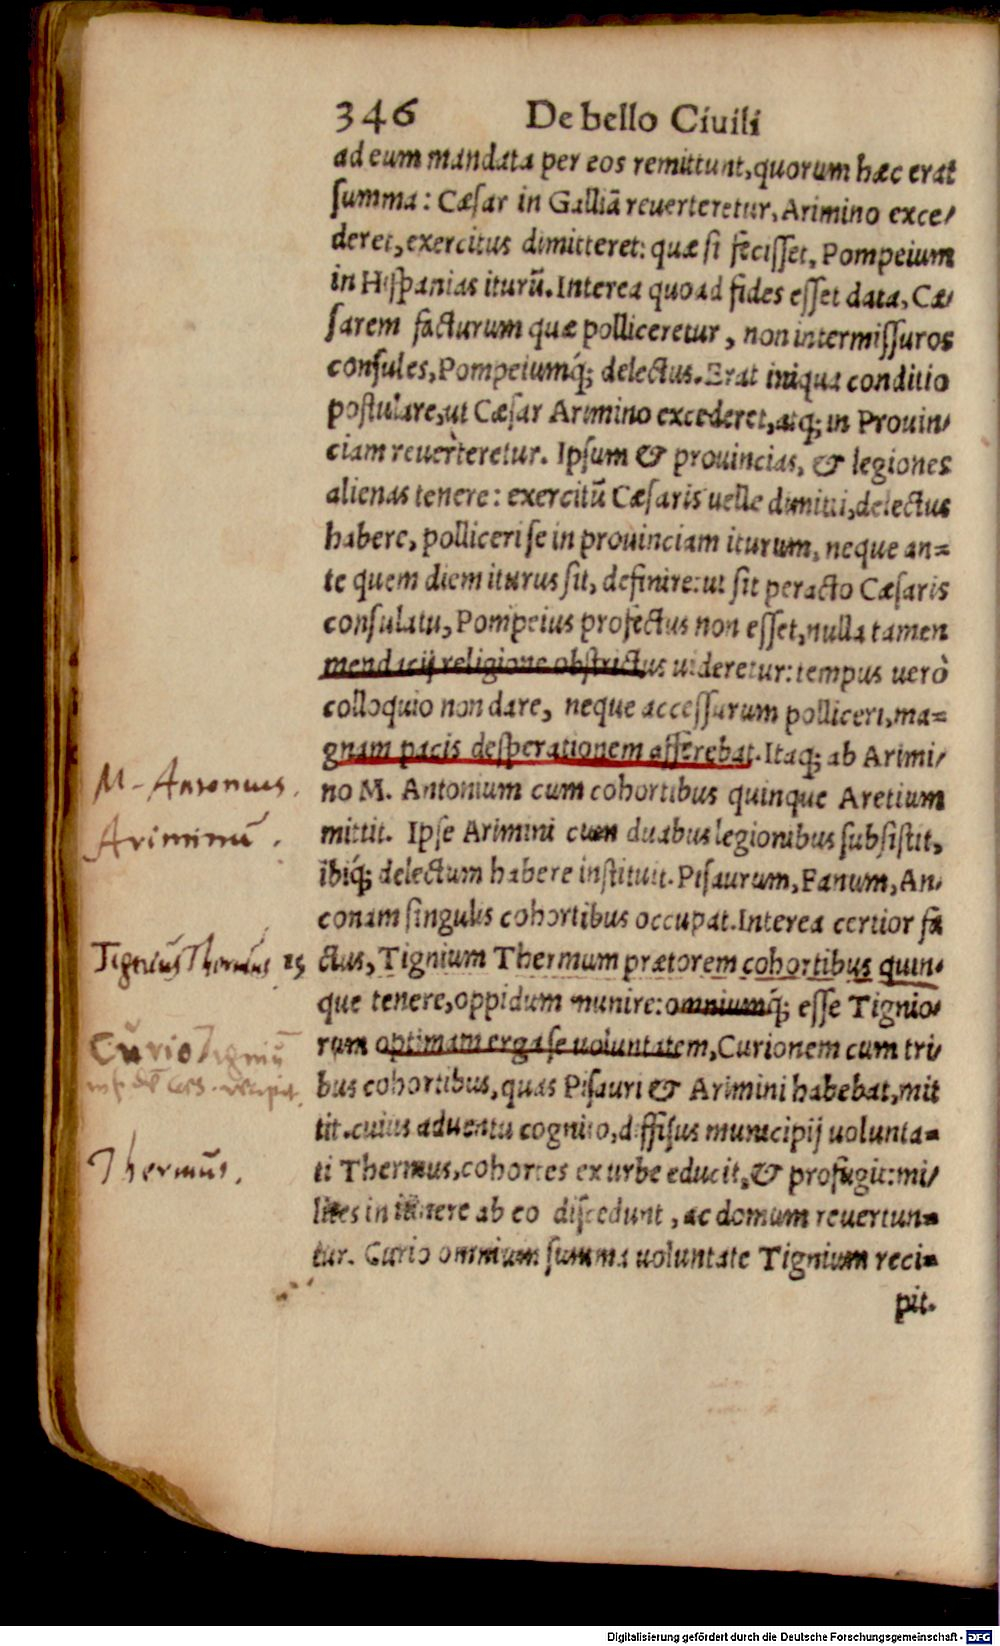 346 De bello Ciuili
ad eum mandata per eos remittunt, quorum hæc erat
ſumma: Cæſar in Galliā reuerteretur, Arimino exce/
deret, exercitus dimitteret: quæ ſi feciſſet, Pompeium
in Hiſpanias iturū. Interea quoad fides eſſet data, Cæ/
ſarem facturum quæ polliceretur, non intermiſſuros
conſules, Pompeiumq́; delectus. Erat iniqua conditio
poſtulare, ut Cæſar Arimino excederet, atq; in Prouin/
ciam reuerteretur. Ipſum & prouincias, & legiones
alienas tenere: exercitū Cæſaris uelle dimitti, delectus
habere, polliceri ſe in prouinciam iturum, neque an=
te quem diem iturus ſit, definire: ut ſit peracto Cæſaris
conſulatu, Pompeius profectus non eſſet, nulla tamen
mendacij religione obſtrictus uideretur: tempus uerò
colloquio non dare, neque acceſſurum polliceri, ma=
gnam pacis deſperationem afferebat. Itaq; ab Arimi/
M - Antonius.
no M. Antonium cum cohortibus quinque Aretium
Ariminū.
mittit. Ipſe Arimini cum duabus legionibus ſubſiſtit,
ibiq́; delectum habere inſtituit. Piſaurum, Fanum, An/
conam ſingulis cohortibus occupat. Interea certior fa
Tignius Thermus
ctus, Tignium Thermum prætorem cohortibus quin/
que tenere, oppidum munire: omniumq́; eſſe Tignio/
Curio Tigniū
rum optimam erga ſe uoluntatem, Curionem cum tri/
bus cohortibus, quas Piſauri & Arimini habebat, mit
tit. cuius aduentu cognito, diffiſus municipij uolunta=
Thermus.
ti Thermus, cohortes ex urbe educit, & profugit: mi/
lites in itinere ab eo diſcedunt, ac domum reuertun=
tur. Curio omnium ſumma uoluntate Tignium reci=
pit.
Digitalisierung gefördert durch die Deutsche Forschungsgemeinschaft - DFG